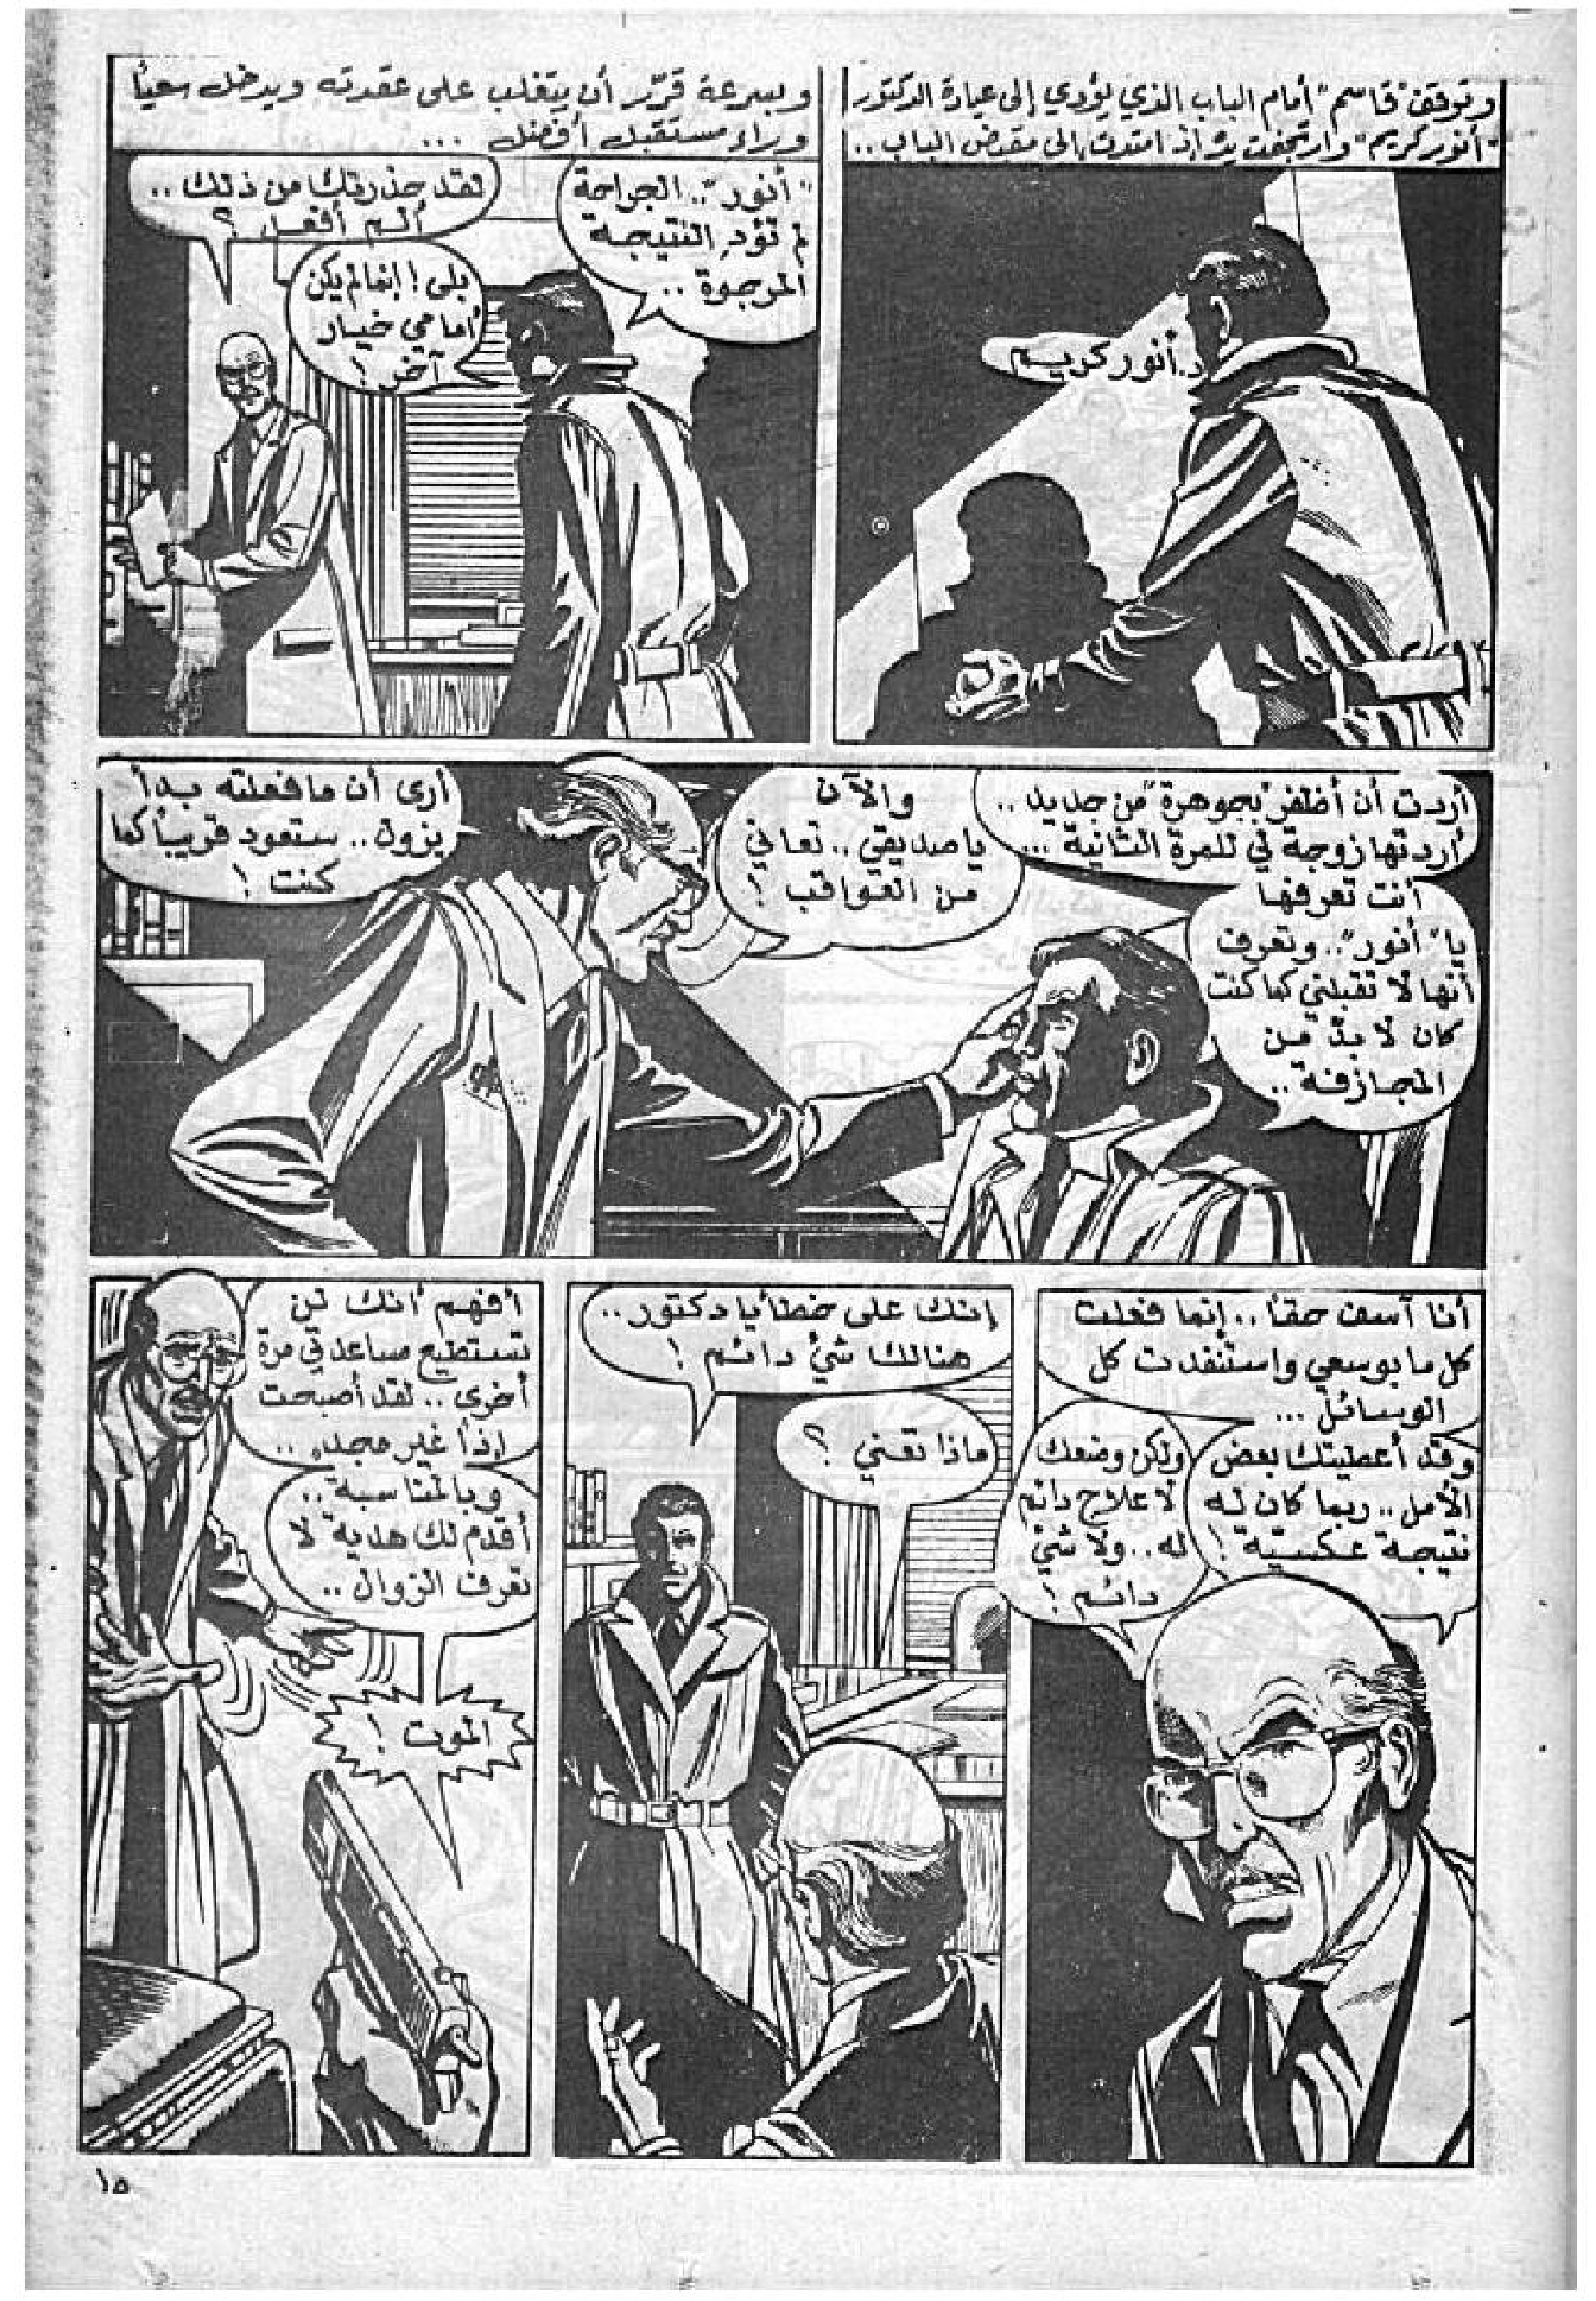 وتوقف "قاسم" أمام الباب الذي يؤدي إلى عيادة الدكتور
"أنور كريم" وارتجفت يده إذ امتدت إلى مقبض الباب..
د. أنور كريم
وبسرعة قرّر أن يتغلب على عقدته ويدخل سعياً
وراء مستقبل أفضل ...
"أنور".. الجراحة
لم تؤد النتيجة
المرجوة ..
لقد حذرتك من ذلك ..
ألم أفعل ؟
بلى ! إنما لم يكن
أمامي خيار
آخر !
أردت أن أظفر "بجوهرة" من جديد ..
أردتها زوجة لي للمرة الثانية ...
أنت تعرفها
يا "أنور".. وتعرف
أنها لا تقبلني كما كنت
كان لا بدّ من
المجازفة ..
والآن
يا صديقي .. تعاني
من العواقب !
أرى أن ما فعلته بدأ
يزول .. ستعود قريباً كما
كنت !
أنا آسف حقاً .. إنما فعلت
كل ما بوسعي واستنفدت كل
الوسائل ...
وقد أعطيتك بعض
الأمل .. ربما كان له
نتيجة عكسيّة !
ولكن وضعك
لا علاج دائم
له .. ولا شيء
دائم !
إنك على خطأ يا دكتور ..
هنالك شيء دائم !
ماذا تعني ؟
أفهم أنك لن
تستطيع مساعدتي مرة
أخرى .. لقد أصبحت
إذاً غير مجدٍ ..
وبالمناسبة ..
أقدم لك هدية لا
تعرف الزوال ..
الموت !
١٥